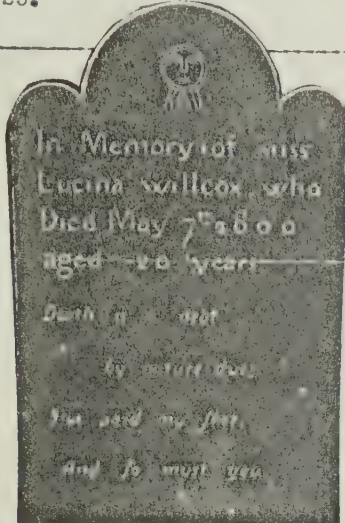 In Memory of miss
Lucina willcox who
Died May 7th 1800
aged 20 years
Death is a debt
by nature due,
I've paid my shot,
And so must you